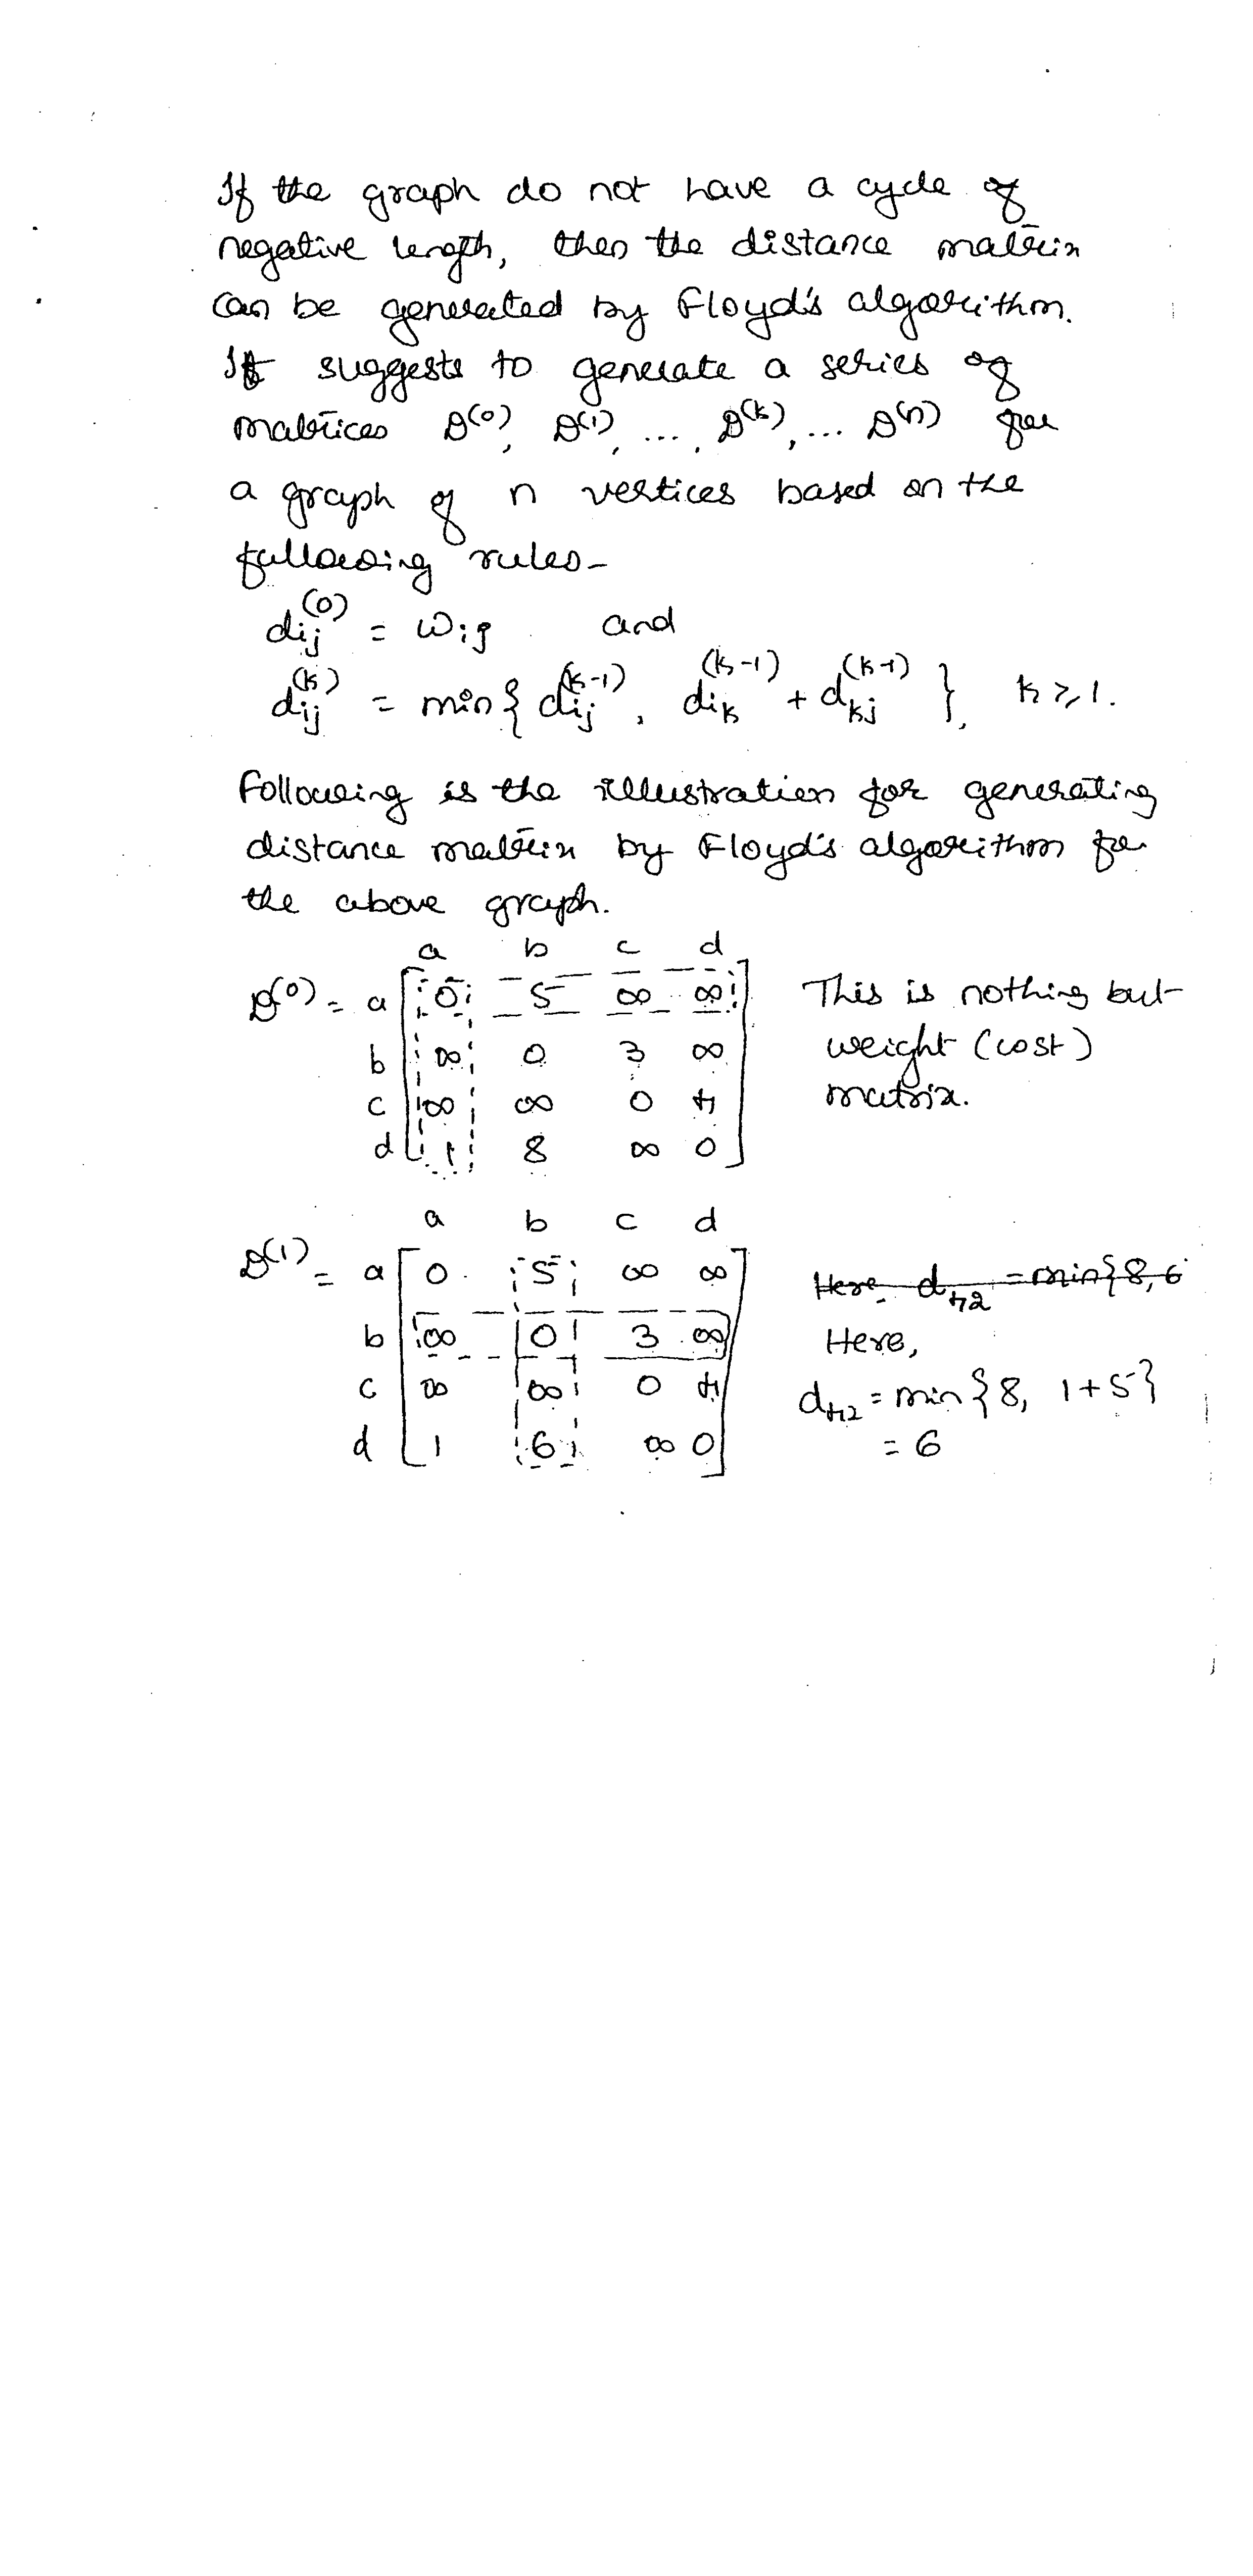 If the graph do not have a cycle of
negative length, then the distance matrix
can be generated by Floyd's algorithm.
It suggests to generate a series of
matrices D^(0), D^(1), ..., D^(k), ... D^(n) for
a graph of n vertices based on the
following rules-
dij^(0) = wij and
dij^(k) = min{ dij^(k-1), dik^(k-1) + dkj^(k-1) }, k ≥ 1.
Following is the illustration for generating
distance matrix by Floyd's algorithm for
the above graph.
a b c d
D^(0) = a 0 5 ∞ ∞ This is nothing but
b ∞ 0 3 ∞ weight (cost)
c ∞ ∞ 0 4 matrix.
d 1 8 ∞ 0
a b c d
D^(1) = a 0 5 ∞ ∞ Here, d42 = min{8, 6
b ∞ 0 3 ∞ Here,
c ∞ ∞ 0 4 d42 = min{8, 1+5}
d 1 6 ∞ 0 = 6